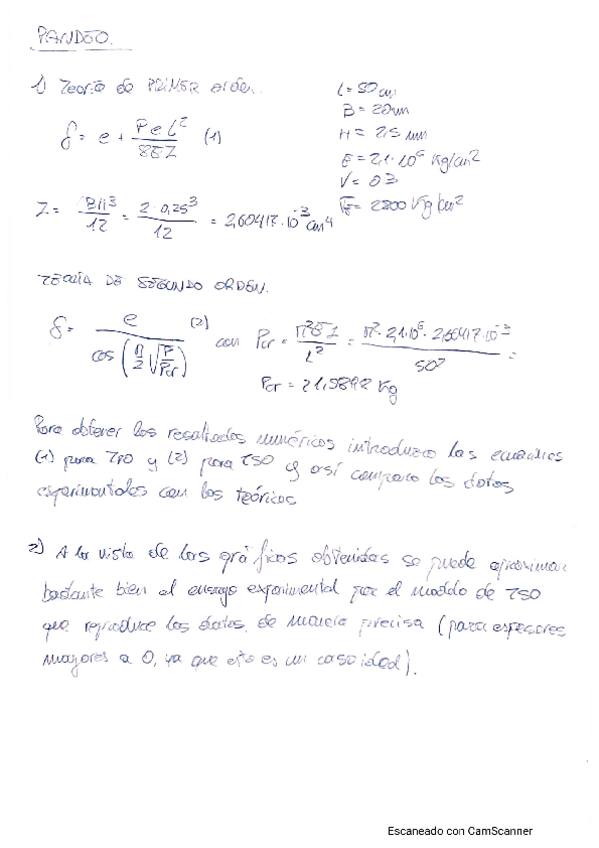 PANDEO.
1) Teoría de PRIMER orden.
L = 50 cm
B = 20 mm
H = 2,5 mm
E = 2,1·10⁶ Kg/cm²
V = 0 3
= 2800 Kg/cm²
δ = e + PeL²/8EI (1)
I = BH³/12 = 2·0,25³/12 = 2,60417·10⁻³ cm⁴
TEORÍA DE SEGUNDO ORDEN.
δ = e/cos(π/2 √(P/Pcr)) (2) con Pcr = π²EI/L² = π²·2,1·10⁶·2,60417·10⁻³/50² =
Pcr = 21,5892 Kg
Para obtener los resultados numéricos introduzco las ecuaciones
(1) para TPO y (2) para TSO y así comparo los datos
experimentales con los teóricos
2) A la vista de las gráficas obtenidas se puede aproximar
bastante bien el ensayo experimental por el modelo de TSO
que reproduce los datos de manera precisa (para espesores
mayores a 0, ya que esto es un caso ideal).
Escaneado con CamScanner